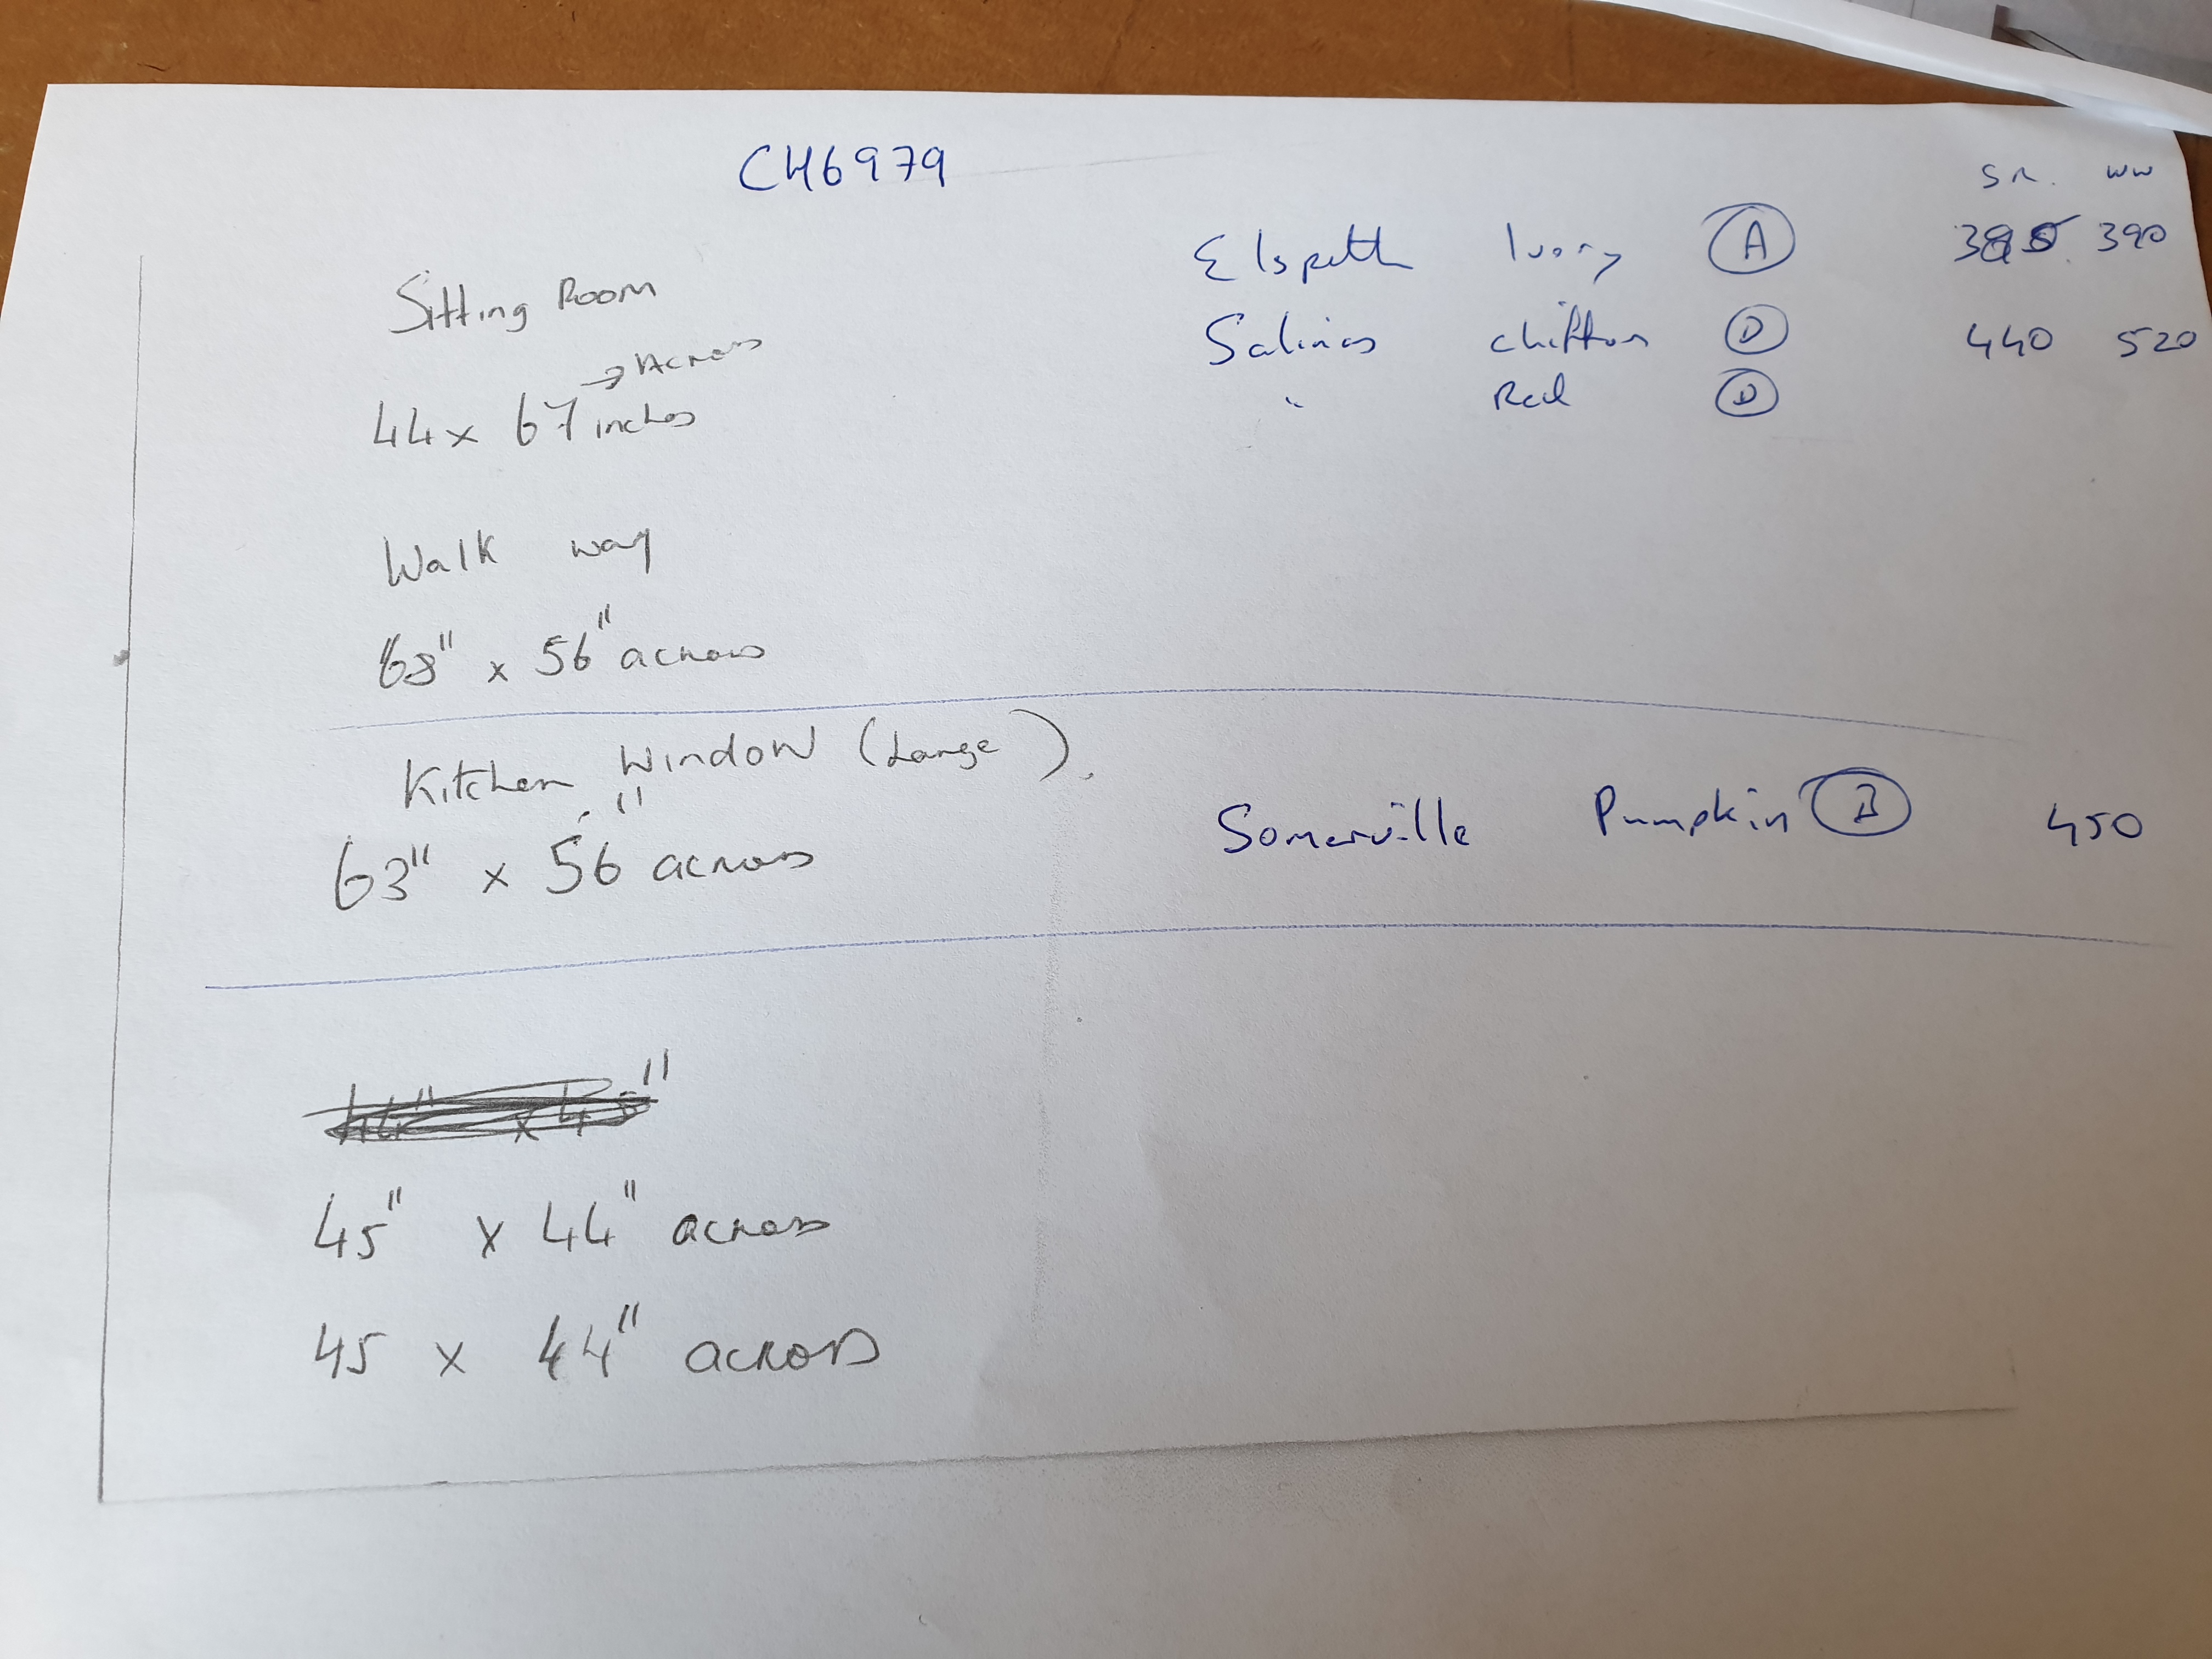 CH6979
S.R. WW
Elspeth Ivory A 390
Salinas chiffon D 440 520
" Red D
Sitting Room
→ Across
44 x 67 inches
Walk way
63" x 56" across
Kitchen Window (Large).
63" x 56" across
Somerville Pumpkin B 450
45" x 44" across
45 x 44" across